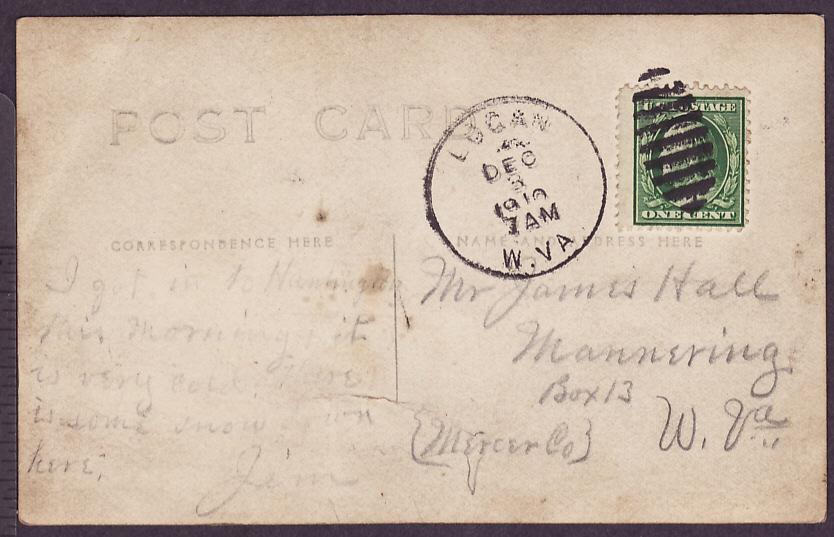 POST CARD
LOGAN
DEC
8
1910
7 AM
W. VA.
U.S. POSTAGE
ONE CENT
CORRESPONDENCE HERE
NAME AND ADDRESS HERE
I got in to Huntington
this Morning, it
is very cold. There
is some snow on
here,
Jim
Mr James Hall
Mannering
Box 13
{Mercer Co}
W. Va